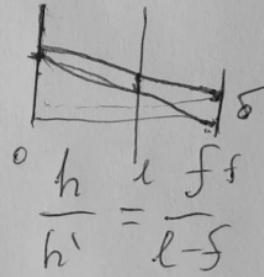 δ
0 l f
h/h' = f/(l-f)